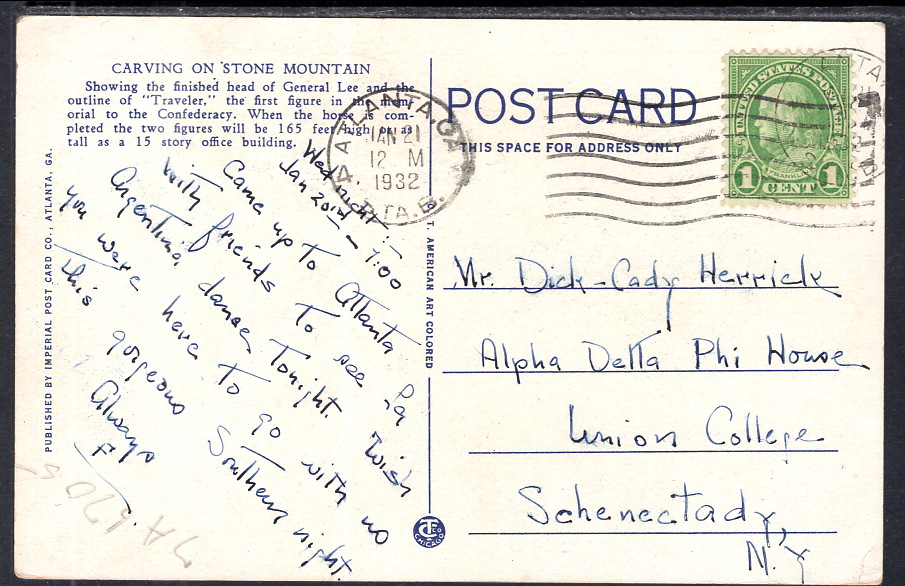 CARVING ON STONE MOUNTAIN
Showing the finished head of General Lee and the
outline of "Traveler," the first figure in the mem-
orial to the Confederacy. When the horse is com-
pleted the two figures will be 165 feet high or as
tall as a 15 story office building.
PUBLISHED BY IMPERIAL POST CARD CO., ATLANTA, GA.
Wed night : 7:00
Jan 20th –
Came up to Atlanta
with friends to see La
Argentina, dance, tonight. Wish
you were here to go with us
this gorgeous Southern night.
Always
F.
T. AMERICAN ART COLORED
POST CARD
THIS SPACE FOR ADDRESS ONLY
ATLANTA, GA.
JAN 21
12 M
1932
STA. B.
UNITED STATES POSTAGE
FRANKLIN
1 CENT 1
Mr. Dick-Cady Herrick
Alpha Delta Phi House
Union College
Schenectady,
N.Y
CT CO
CHICAGO